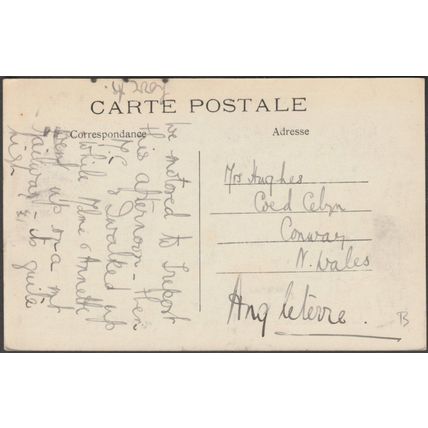 CARTE POSTALE
Correspondance
Adresse
We motored to Treport
this afternoon - then
I walked up
while Mme & Annette
went up on a mt
railway - to quite
Mrs Hughes
Coed Celyn
Conway
N. Wales
Angleterre.
B